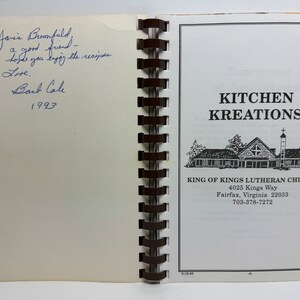 a good friend -
hope you enjoy the recipes
Love,
Barb Cole
1993
KITCHEN
KREATIONS
KING OF KINGS LUTHERAN CHU
4025 Kings Way
Fairfax, Virginia 22033
703-378-7272